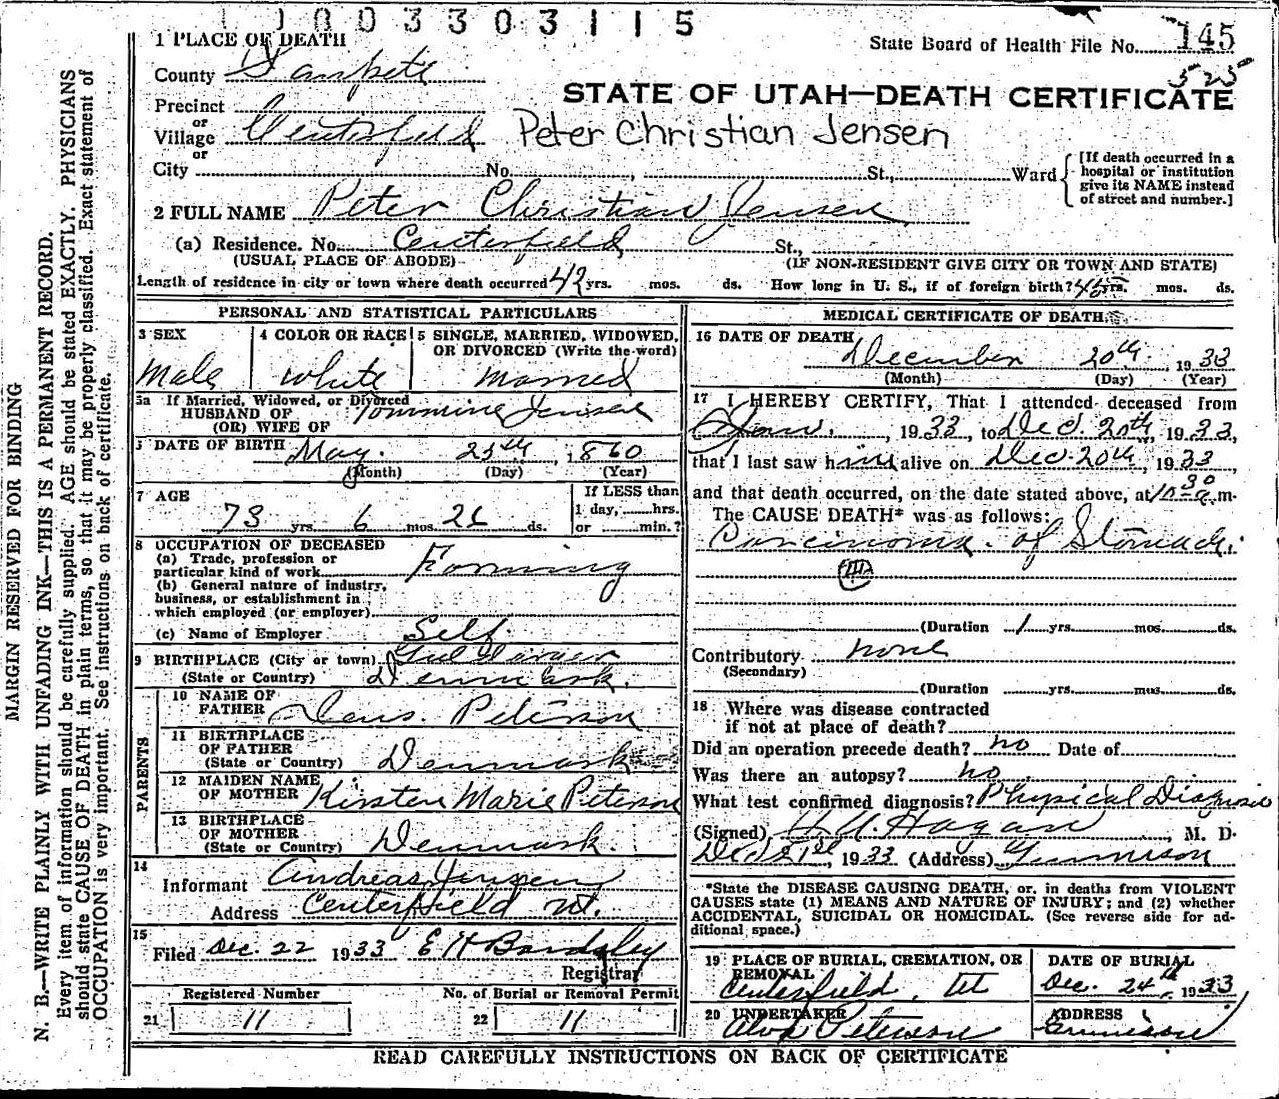 1 0 0 3 3 0 3 1 1 5
1 PLACE OF DEATH
State Board of Health File No. 145
525
County Sanpete
STATE OF UTAH—DEATH CERTIFICATE
Precinct
or
Village Centerfield
Peter Christian Jensen
or
City No. , St., Ward
[If death occurred in a
hospital or institution
give its NAME instead
of street and number.]
2 FULL NAME Peter Christian Jensen
(a) Residence. No. Centerfield St.,
(USUAL PLACE OF ABODE) (IF NON-RESIDENT GIVE CITY OR TOWN AND STATE)
Length of residence in city or town where death occurred 42 yrs. mos. ds. How long in U. S., if of foreign birth? yrs. mos. ds.
PERSONAL AND STATISTICAL PARTICULARS
3 SEX
Male
4 COLOR OR RACE
White
5 SINGLE, MARRIED, WIDOWED,
OR DIVORCED (Write the word)
Married
5a If Married, Widowed, or Divorced
HUSBAND OF Jensen
(OR) WIFE OF
DATE OF BIRTH May 25th 1860
(Month) (Day) (Year)
7 AGE
73 yrs 6 mos. ds.
If LESS than
1 day, hrs.
or min.?
8 OCCUPATION OF DECEASED
(a) Trade, profession or
particular kind of work Farming
(b) General nature of industry,
business, or establishment in
which employed (or employer)
(c) Name of Employer Self.
9 BIRTHPLACE (City or town)
(State or Country) Denmark.
PARENTS
10 NAME OF
FATHER Peterson
11 BIRTHPLACE
OF FATHER
(State or Country) Denmark
12 MAIDEN NAME
OF MOTHER Kirsten Marie Peterson
13 BIRTHPLACE
OF MOTHER
(State or Country) Denmark.
14
Informant Andreas Jensen
Address Centerfield Ut.
15
Filed Dec. 22 1933 E H Bardsley
Registrar
Registered Number
21 11
No. of Burial or Removal Permit
22 11
MEDICAL CERTIFICATE OF DEATH
16 DATE OF DEATH
December 20th 1933
(Month) (Day) (Year)
17 I HEREBY CERTIFY, That I attended deceased from
Jan. , 1933, to Dec. 20th, 1933,
that I last saw him alive on Dec. 20th, 1933,
and that death occurred, on the date stated above, at 10-30 a.m.
The CAUSE DEATH* was as follows:
Carcinoma of Stomach.
III
(Duration 1 yrs. mos. ds.
Contributory none
(Secondary)
(Duration yrs. mos. ds.
18 Where was disease contracted
if not at place of death?
Did an operation precede death? no Date of
Was there an autopsy? no
What test confirmed diagnosis? Physical Diagnosis
(Signed) Hagan , M. D.
Dec 21st, 1933 (Address) Gunnison
*State the DISEASE CAUSING DEATH, or, in deaths from VIOLENT
CAUSES state (1) MEANS AND NATURE OF INJURY; and (2) whether
ACCIDENTAL, SUICIDAL OR HOMICIDAL. (See reverse side for ad-
ditional space.)
19 PLACE OF BURIAL, CREMATION, OR
REMOVAL
Centerfield, Ut
DATE OF BURIAL
Dec. 24th 1933
20 UNDERTAKER
Peterson
ADDRESS
Gunnison
READ CAREFULLY INSTRUCTIONS ON BACK OF CERTIFICATE
MARGIN RESERVED FOR BINDING
N. B.—WRITE PLAINLY WITH UNFADING INK—THIS IS A PERMANENT RECORD.
Every item of information should be carefully supplied. AGE should be stated EXACTLY. PHYSICIANS
should state CAUSE OF DEATH in plain terms, so that it may be properly classified. Exact statement of
OCCUPATION is very important. See instructions on back of certificate.